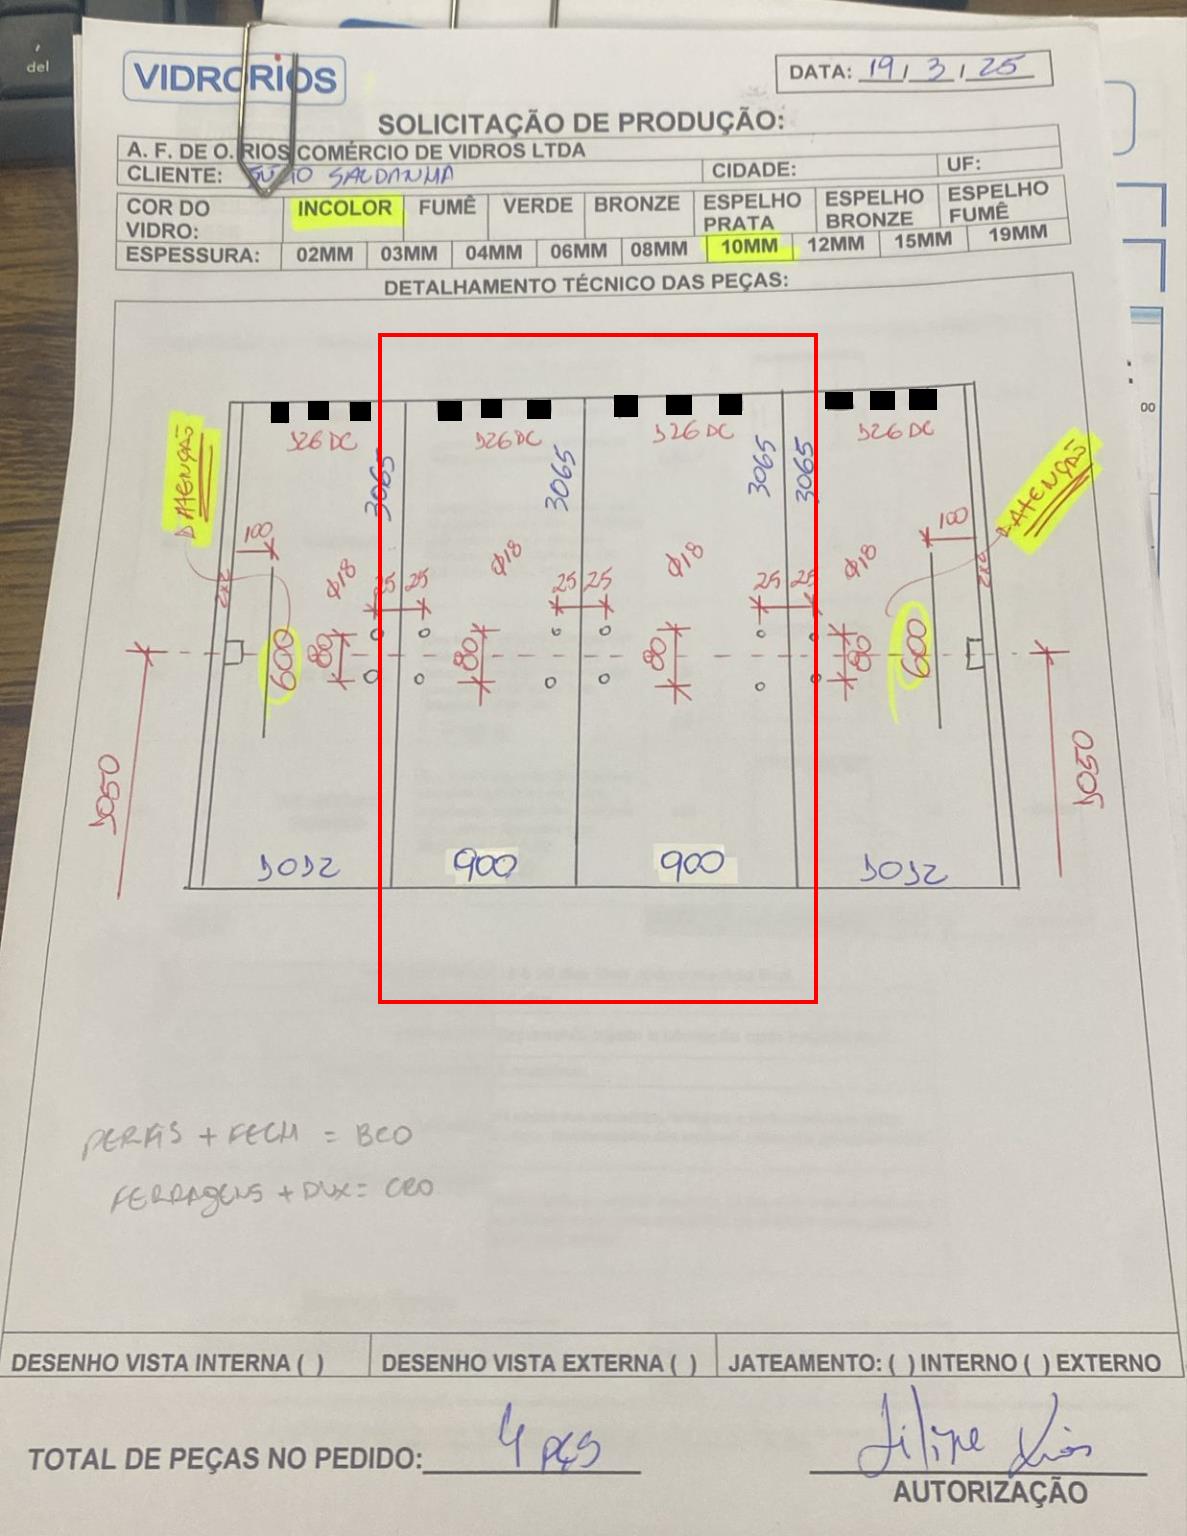 del
VIDRORIOS
DATA: 19 / 3 / 25
SOLICITAÇÃO DE PRODUÇÃO:
A. F. DE O. RIOS COMÉRCIO DE VIDROS LTDA
CLIENTE: SALDANHA CIDADE: UF:
COR DO VIDRO: INCOLOR FUMÊ VERDE BRONZE ESPELHO PRATA ESPELHO BRONZE ESPELHO FUMÊ
ESPESSURA: 02MM 03MM 04MM 06MM 08MM 10MM 12MM 15MM 19MM
DETALHAMENTO TÉCNICO DAS PEÇAS:
00
526 DC 526 DC 526 DC 526 DC
ATENÇÃO 3065 3065 3065 3065 ATENÇÃO
100 100
Φ18 Φ18 Φ18 Φ18
25 25 25 25 25 25
2x2 2x2
600 80 80 80 80 600
1050 1050
1012 900 900 1012
PERFIS + FECH = BCO
FERRAGENS + DUX = CRO
DESENHO VISTA INTERNA ( ) DESENHO VISTA EXTERNA ( ) JATEAMENTO: ( ) INTERNO ( ) EXTERNO
TOTAL DE PEÇAS NO PEDIDO: 4 PÇS Filipe Rios
AUTORIZAÇÃO